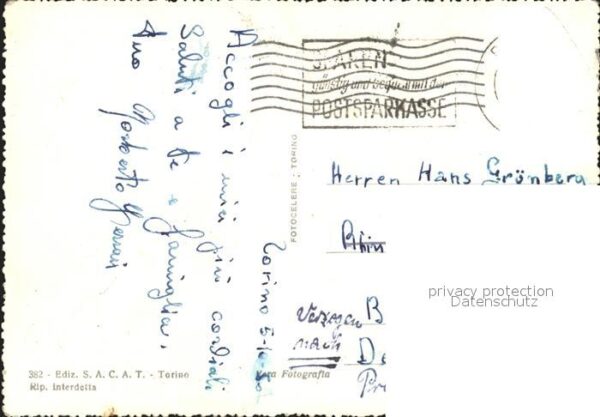 Accogli i miei più cordiali
Saluti a te e famiglia.
tuo
Torino
SPAREN
günstig und bequem mit der
POSTSPARKASSE
FOTOCELERE : TORINO
Herren Hans Grönberg
Verzogen B
nach De
privacy protection
Datenschutz
382 - Ediz. S. A. C. A. T. - Torino
Rip. Interdetta
Vera Fotografia